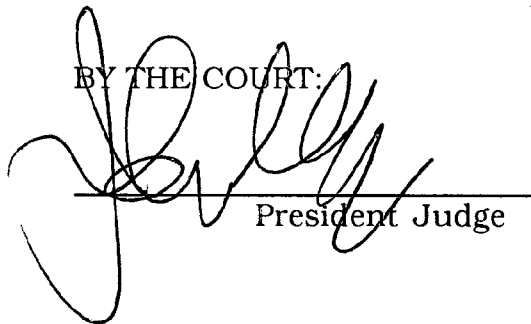 BY THE COURT:
President Judge